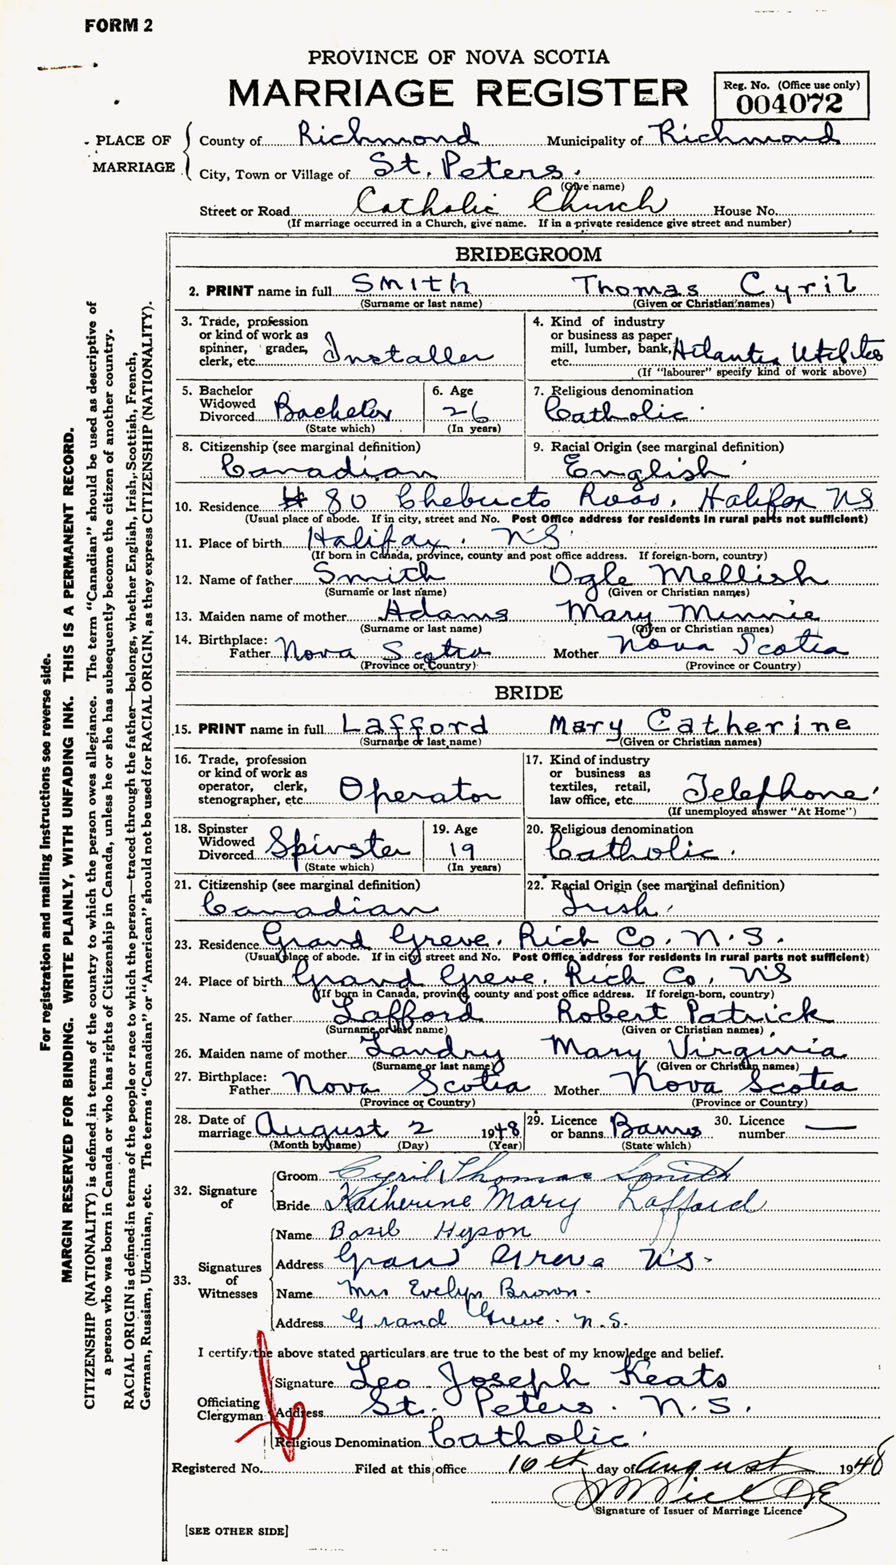 FORM 2
PROVINCE OF NOVA SCOTIA
MARRIAGE REGISTER
Reg. No. (Office use only)
004072
PLACE OF MARRIAGE
County of Richmond Municipality of Richmond
City, Town or Village of St. Peters.
(Give name)
Street or Road Catholic Church House No.
(If marriage occurred in a Church, give name. If in a private residence give street and number)
BRIDEGROOM
2. PRINT name in full Smith Thomas Cyril
(Surname or last name) (Given or Christian names)
3. Trade, profession or kind of work as spinner, grader, clerk, etc. Installer
4. Kind of industry or business as paper mill, lumber, bank, etc. Atlantic Utilities
(If "labourer" specify kind of work above)
5. Bachelor Widowed Divorced Bachelor
(State which)
6. Age 26
(In years)
7. Religious denomination Catholic
8. Citizenship (see marginal definition) Canadian
9. Racial Origin (see marginal definition) English
10. Residence # 80 Chebucto Road, Halifax NS
(Usual place of abode. If in city, street and No. Post Office address for residents in rural parts not sufficient)
11. Place of birth Halifax. NS
(If born in Canada, province, county and post office address. If foreign-born, country)
12. Name of father Smith Ogle Mellish
(Surname or last name) (Given or Christian names)
13. Maiden name of mother Adams Mary Minnie
(Surname or last name) (Given or Christian names)
14. Birthplace:
Father Nova Scotia Mother Nova Scotia
(Province or Country) (Province or Country)
BRIDE
15. PRINT name in full Lafford Mary Catherine
(Surname or last name) (Given or Christian names)
16. Trade, profession or kind of work as operator, clerk, stenographer, etc. Operator
17. Kind of industry or business as textiles, retail, law office, etc. Telephone
(If unemployed answer "At Home")
18. Spinster Widowed Divorced Spinster
(State which)
19. Age 19
(In years)
20. Religious denomination Catholic.
21. Citizenship (see marginal definition) Canadian
22. Racial Origin (see marginal definition) Irish
23. Residence Grand Greve. Rich Co. N.S.
(Usual place of abode. If in city street and No. Post Office address for residents in rural parts not sufficient)
24. Place of birth Grand Greve, Rich Co, NS
(If born in Canada, province, county and post office address. If foreign-born, country)
25. Name of father Lafford Robert Patrick
(Surname or last name) (Given or Christian names)
26. Maiden name of mother Landry Mary Virginia
(Surname or last name) (Given or Christian names)
27. Birthplace:
Father Nova Scotia Mother Nova Scotia
(Province or Country) (Province or Country)
28. Date of marriage August 2 1948
(Month by name) (Day) (Year)
29. Licence or banns Banns
(State which)
30. Licence number —
32. Signature of
Groom Cyril Thomas Smith
Bride Katherine Mary Lafford
33. Signatures of Witnesses
Name Basil Hyson
Address Grand Greve N.S.
Name Mrs Evelyn Brown.
Address Grand Greve. N.S.
I certify the above stated particulars are true to the best of my knowledge and belief.
Officiating Clergyman
Signature Leo Joseph Keats
Address St. Peters. N.S.
Religious Denomination Catholic
Registered No. Filed at this office 16th day of August 1948
Signature of Issuer of Marriage Licence
[SEE OTHER SIDE]
For registration and mailing instructions see reverse side.
MARGIN RESERVED FOR BINDING. WRITE PLAINLY, WITH UNFADING INK. THIS IS A PERMANENT RECORD.
CITIZENSHIP (NATIONALITY) is defined in terms of the country to which the person owes allegiance. The term "Canadian" should be used as descriptive of
a person who was born in Canada or who has rights of Citizenship in Canada, unless he or she has subsequently become the citizen of another country.
RACIAL ORIGIN is defined in terms of the people or race to which the person—traced through the father—belongs, whether English, Irish, Scottish, French,
German, Russian, Ukrainian, etc. The terms "Canadian" or "American" should not be used for RACIAL ORIGIN, as they express CITIZENSHIP (NATIONALITY).